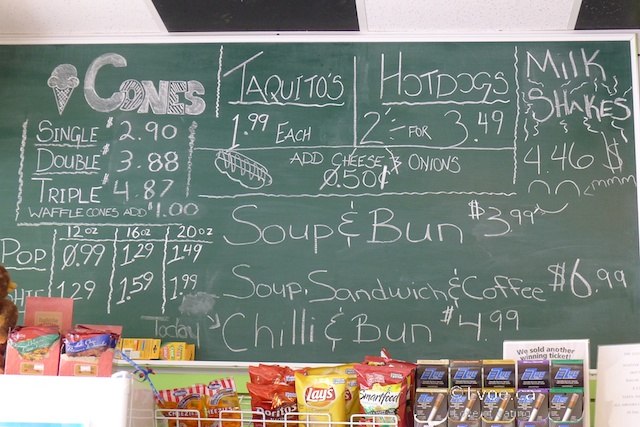 CONES
SINGLE $2.90
DOUBLE $3.88
TRIPLE $4.87
WAFFLE CONES ADD $1.00
12oz 16oz 20oz
POP 0.99 1.29 1.49
1.29 1.59 1.99
TAQUITO'S
1.99 EACH
HOTDOGS
2 FOR 3.49
ADD CHEESE & ONIONS
0.50¢
MILK
SHAKES
4.46 $
Soup & Bun $3.99
Soup, Sandwich & Coffee $6.99
Today
Chilli & Bun $4.99
We sold another
winning ticket!
CHEEZIES
Doritos
Lay's
Smartfood